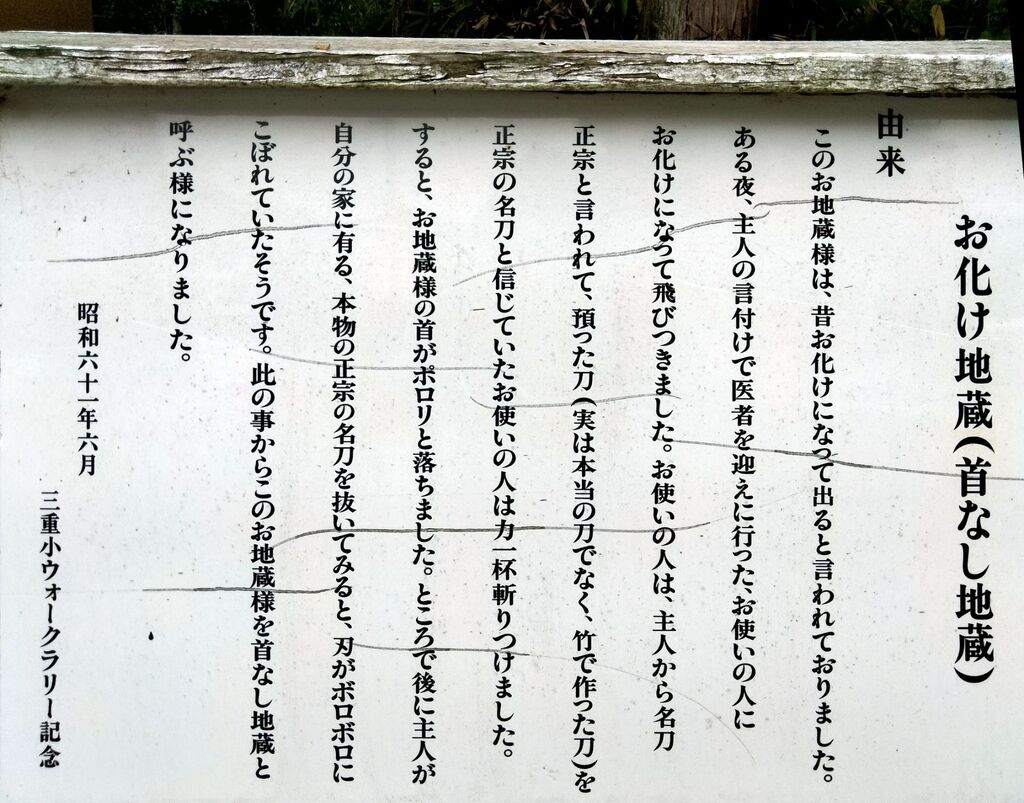 お化け地蔵(首なし地蔵)
由来
このお地蔵様は、昔お化けになって出ると言われておりました。
ある夜、主人の言付けで医者を迎えに行った、お使いの人に
お化けになって飛びつきました。お使いの人は、主人から名刀
正宗と言われて、預った刀(実は本当の刀でなく、竹で作った刀)を
正宗の名刀と信じていたお使いの人は力一杯斬りつけました。
すると、お地蔵様の首がポロリと落ちました。ところで後に主人が
自分の家に有る、本物の正宗の名刀を抜いてみると、刃がボロボロに
こぼれていたそうです。此の事からこのお地蔵様を首なし地蔵と
呼ぶ様になりました。
昭和六十一年六月
三重小ウォークラリー記念